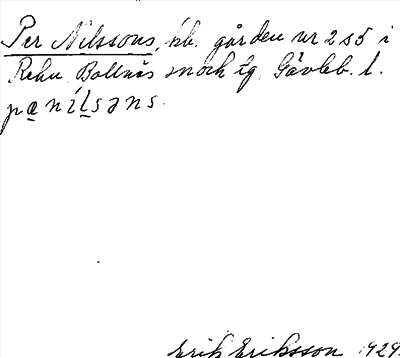 Per Nilssons, hb. gården nr 2 s 5 i
Rehn Bollnäs snoch tg. Gävleb. l.
pænílsəns.
Erik Eriksson 1929.